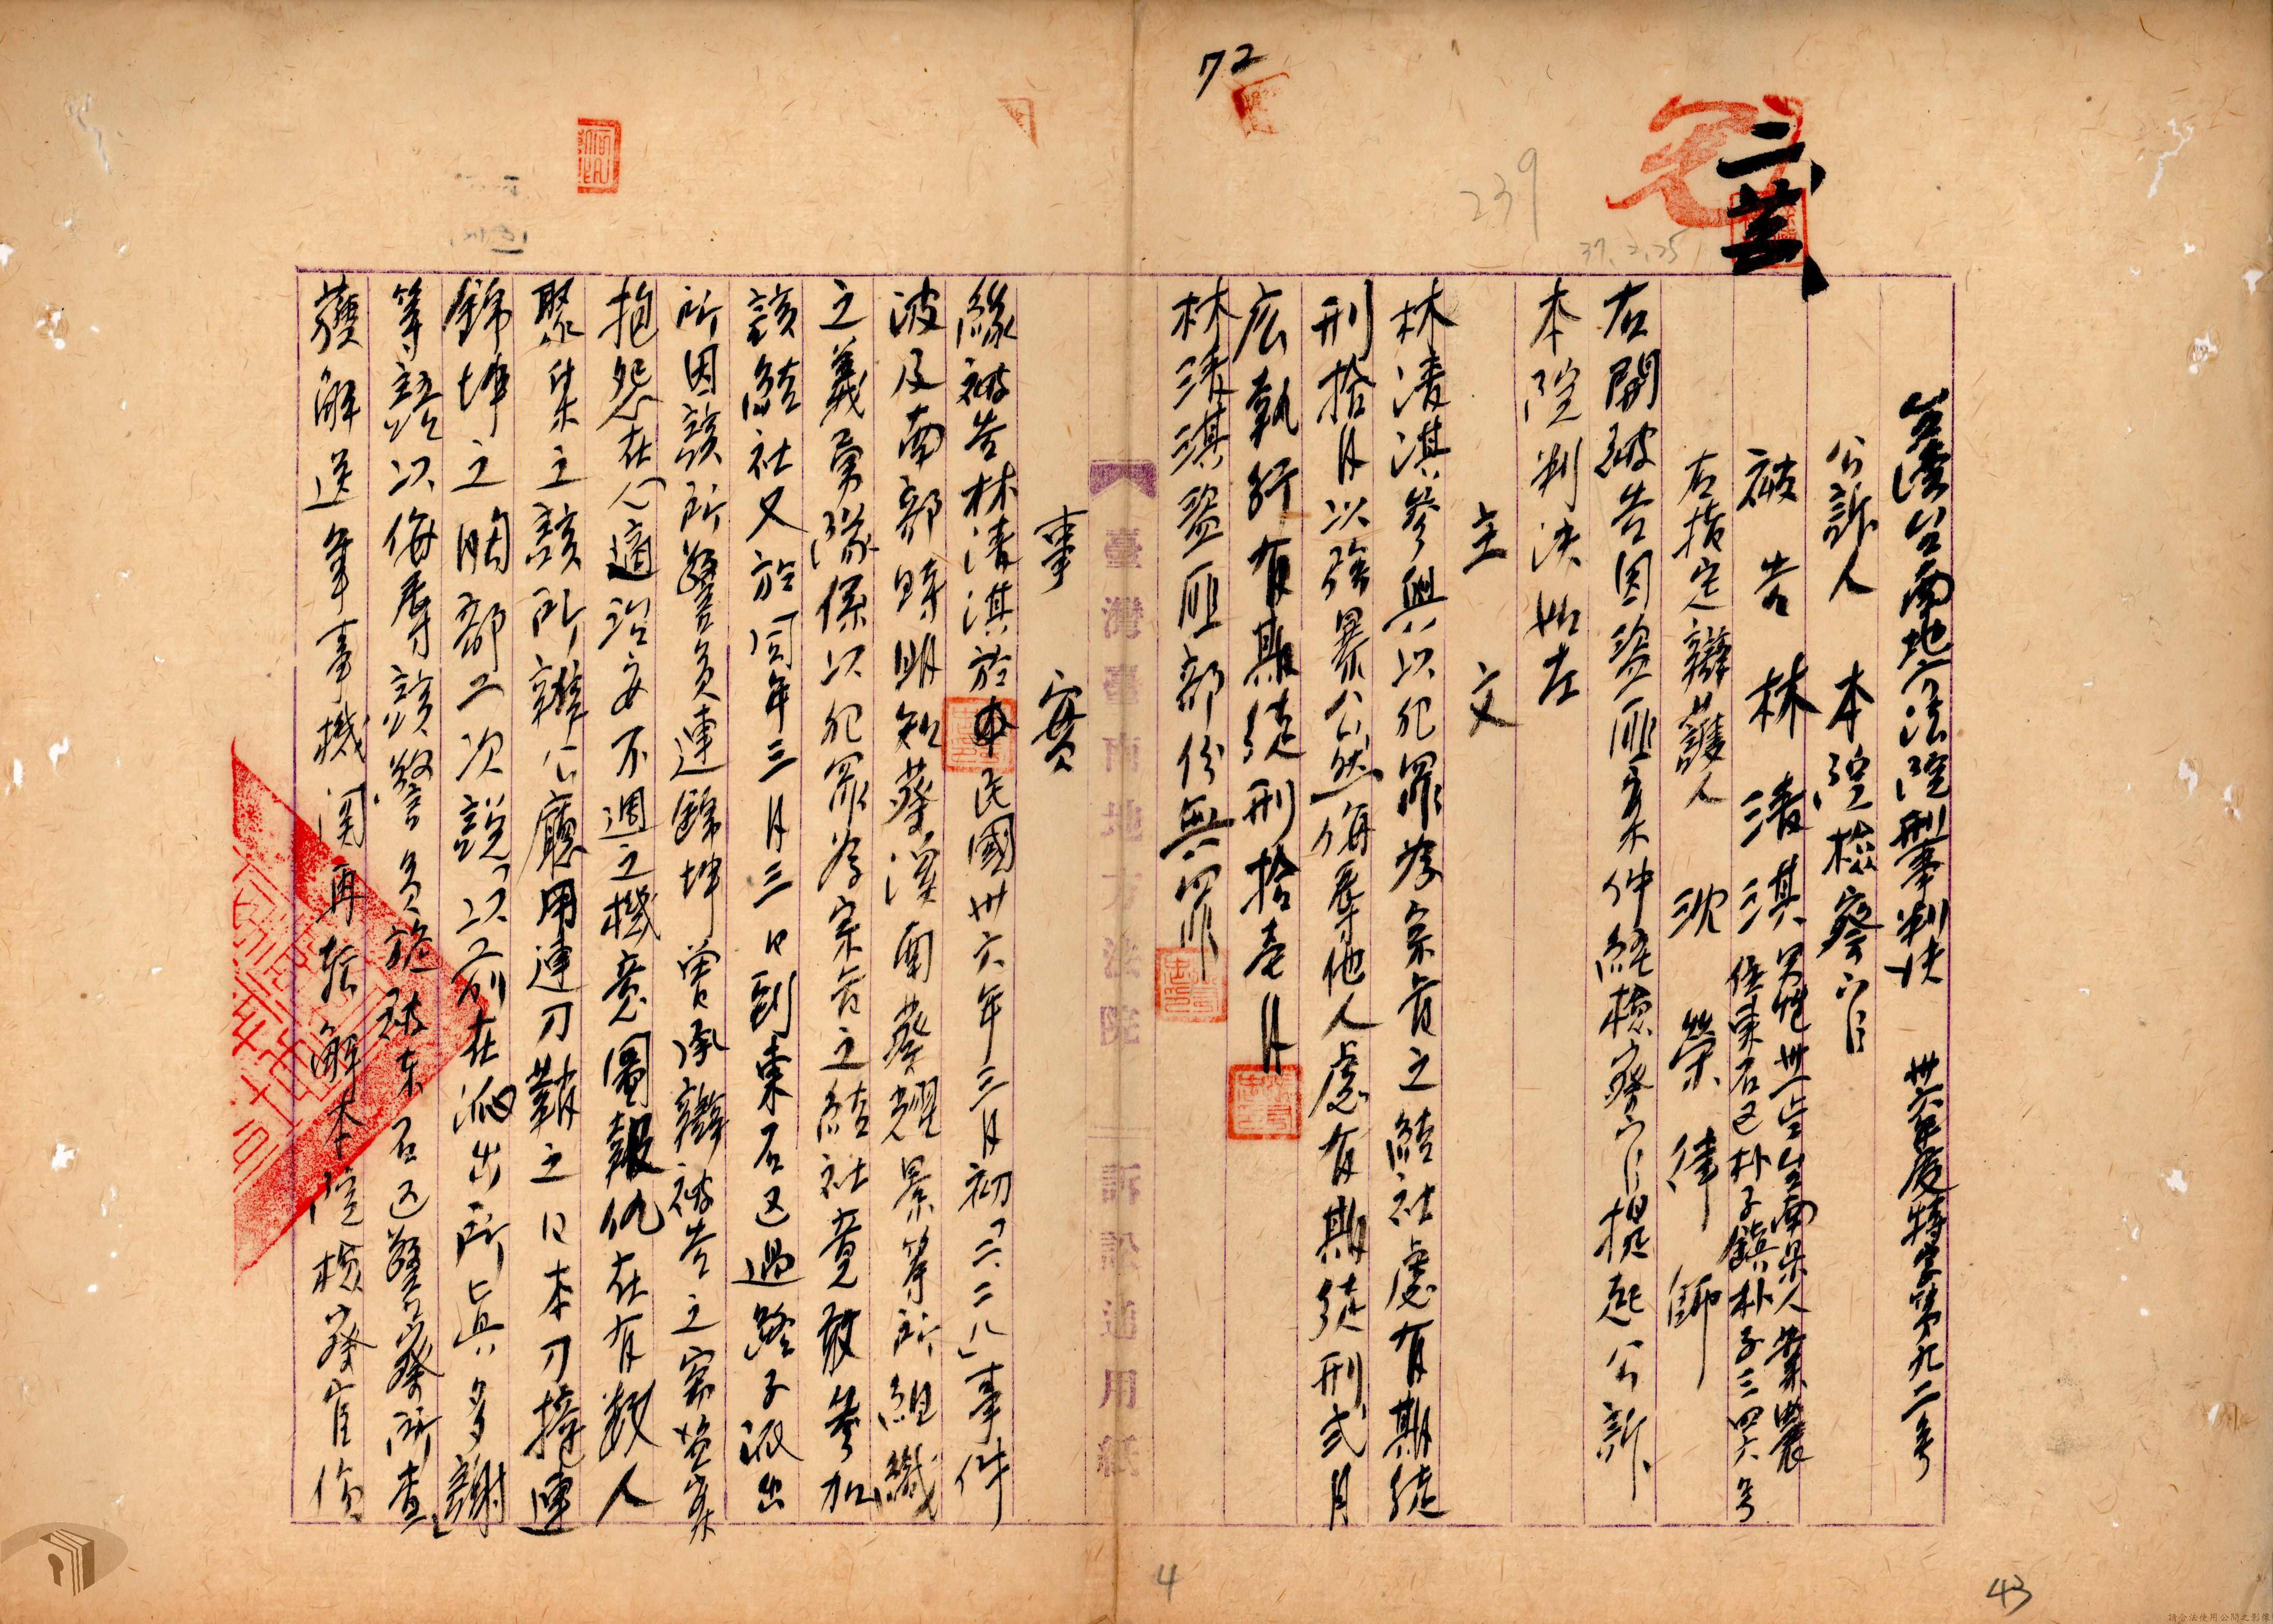 72
239
37.2.25
臺灣台南地方法院刑事判決 卅六年度特字第九二号
公訴人 本院檢察官
被告 林清淇 男性卅一岁台南县人業農
住東石区朴子鎮朴子三四六号
右指定辯護人 沈榮律師
右開被告因盜匪案件經檢察官提起公訴
本院判決如左
主文
林清淇參與以犯罪為宗旨之結社處有期徒
刑拾月以強暴公然侮辱他人處有期徒刑弍月
应執行有期徒刑拾壱月
林清淇盜匪部份無罪
臺灣臺南地方法院 訴訟通用紙
事實
緣被告林清淇於民國卅六年三月初「二、二八」事件
波及南部時明知蔡溪南蔡耀景等所組織
之義勇隊係以犯罪為宗旨之結社竟敢參加
該結社又於同年三月三日到東石区過路子派出
所因該所警員連錦坤曾承辦被告之窃盜案
抱怨在心適治安不週之機竟圖報仇在有数人
聚集之該所辦公廳用連刀鞘之日本刀擔連
錦坤之胸部二次說「以前在派出所真多謝」
等語以侮辱該警員旋被東石区警察所查
獲解送軍事機関再轉解本院檢察官偵
4
43
請合法使用公開之影像